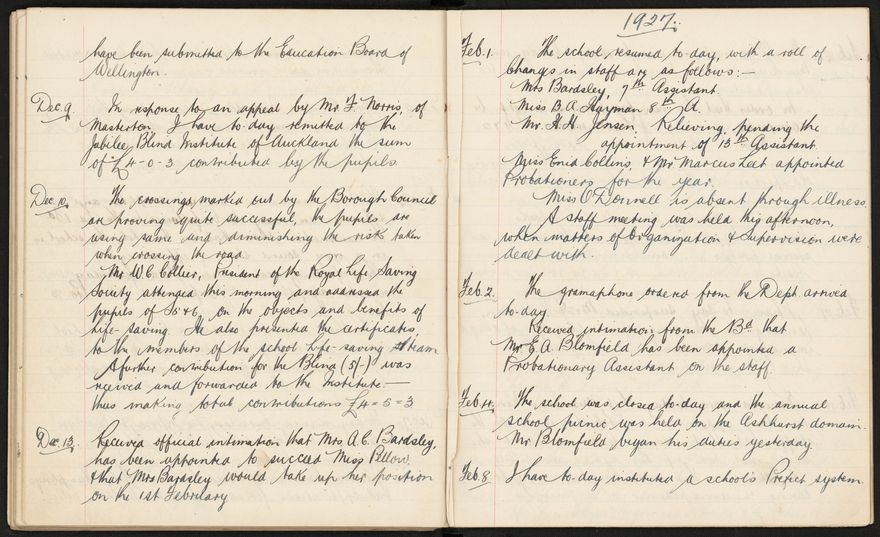 have been submitted to the Education Board of
Wellington.
Dec. 9. In response to an appeal by Mr. F. Norris, of
Masterton I have to-day remitted to the
Jubilee Blind Institute of Auckland the sum
of £4-0-3 contributed by the pupils.
Dec. 10. The crossings, marked out by the Borough Council
are proving quite successful, the pupils are
using same and diminishing the risk taken
when crossing the road.
Mr W.C. Collier, President of the Royal Life Saving
Society attended this morning and addressed the
pupils of S5 & 6 on the objects and benefits of
life-saving. He also presented the certificates,
to the members of the school life-saving team
A further contribution for the Blind (5/-) was
received and forwarded to the Institute:—
thus making total contributions £4=5=3
Dec. 13. Received official intimation that Mrs A.C. Bardsley,
has been appointed to succeed Miss Pillow,
& that Mrs Bardsley would take up her position
on the 1st February
1927.
Feb. 1. The school resumed to-day, with a roll of
Changes in staff are as follows:—
Mrs Bardsley, 7th Assistant.
Miss B.A. Hayman 8th A.
Mr. H.H. Jensen, Relieving, pending the
appointment of 13th Assistant.
Miss Enid Collins, & Mr Marcus Leet appointed
Probationers for the year.
Miss O'Donnell is absent through illness.
A staff meeting was held this afternoon,
when matters of Organization & Supervision were
dealt with.
Feb. 2. The gramaphone ordered from the Dept. arrived
to-day.
Received intimation from the Bd that
Mr E.A. Blomfield has been appointed a
Probationary Assistant on the staff.
Feb. 4. The school was closed to-day and the annual
school picnic was held on the Ashhurst domain.
Mr Blomfield began his duties yesterday.
Feb. 8. I have to-day instituted a school's Prefect system.